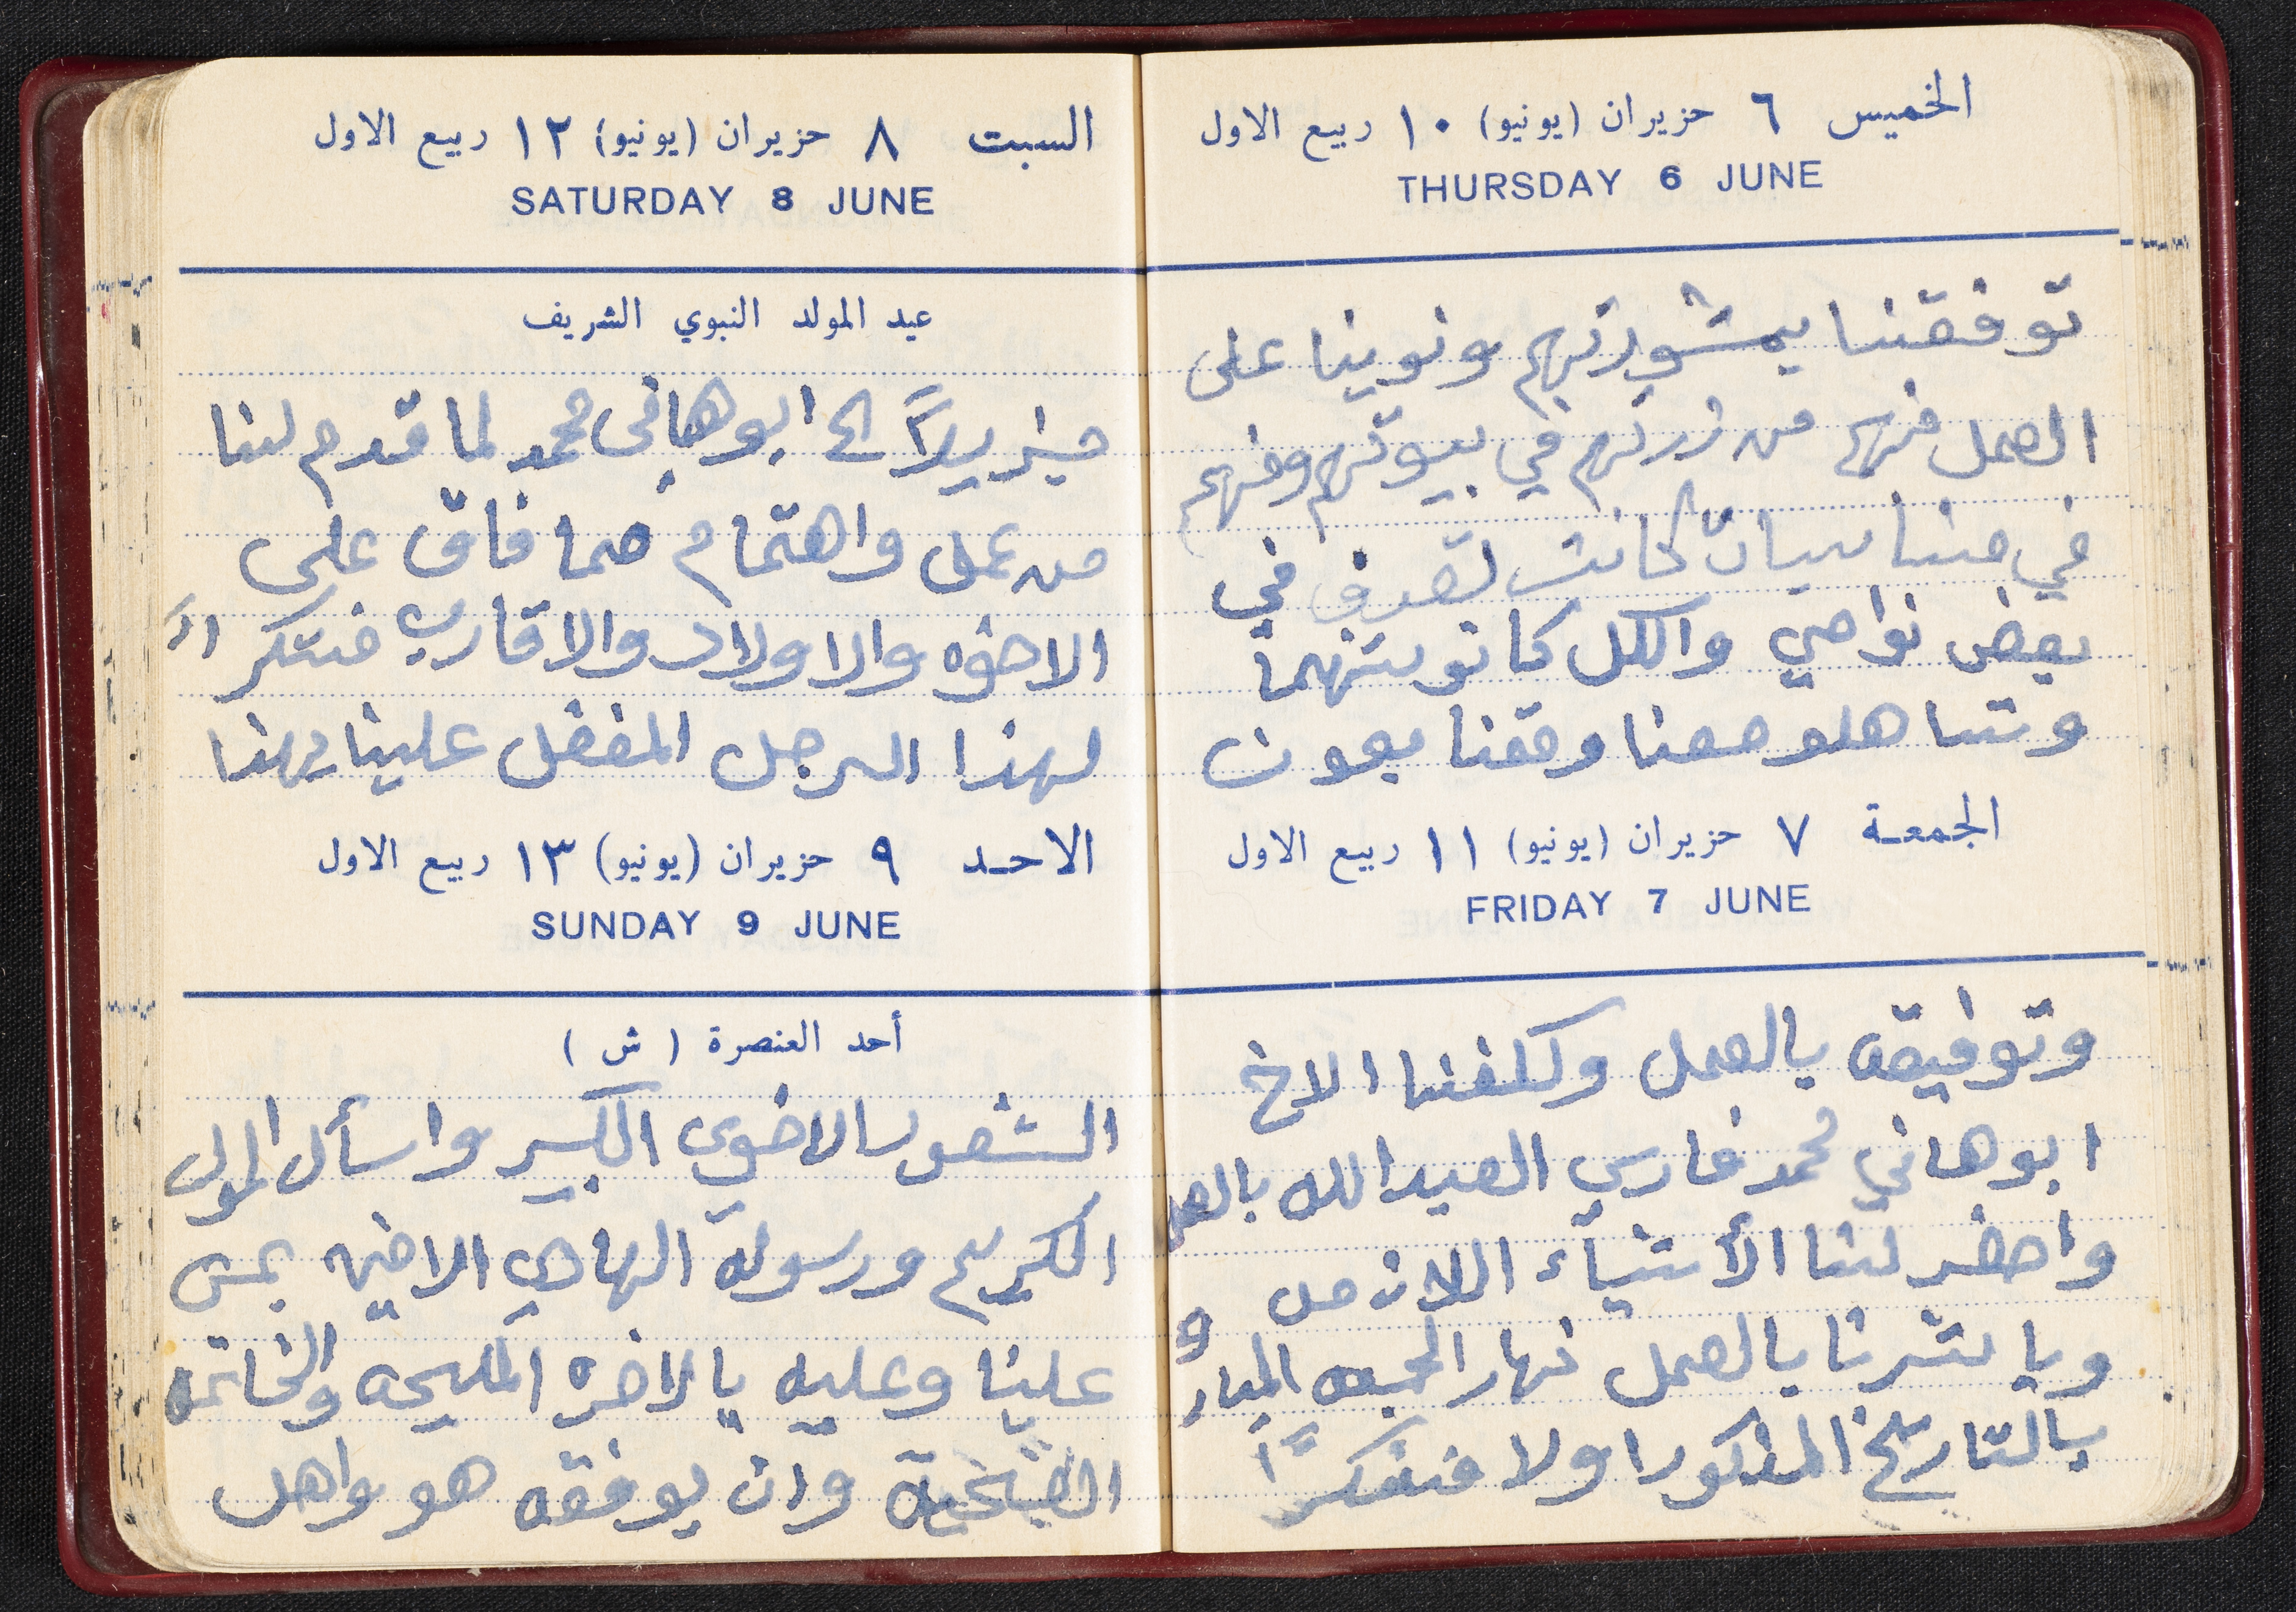 الخميس ٦ حزيران (يونيو) ١٠ ربيع الاول
THURSDAY 6 JUNE
توفقنا بمشورتهم ونوينا على
العمل منهم من زرتهم في بيوتهم ومنهم
في مناسبات كانت لتعرف في
بعض نواحي والكل كانو شهما
وتساهلو معنا وقمنا بعون
الجمعة ٧ حزيران (يونيو) ١١ ربيع الاول
FRIDAY 7 JUNE
وتوفيقه بالعمل وكلفنا الاخ
ابو هاني محمد فارس العبدالله بالعمل
واحضر لنا الأشياء اللازمه
وباشرنا بالعمل نهار الجمعه المبارك
بالتاريخ المذكور اولا فشكراً
السبت ٨ حزيران (يونيو) ١٢ ربيع الاول
SATURDAY 8 JUNE
عيد المولد النبوي الشريف
جزيلاً الى ابو هاني محمد لما قدم لنا
من عمل واهتمام مما فاق على
الاخوه والاولاد والاقارب فشكراً
لهذا الرجل المفضل علينا بهذا
الاحد ٩ حزيران (يونيو) ١٣ ربيع الاول
SUNDAY 9 JUNE
أحد العنصرة (ش)
الشعور الاخوي الكبير واسأل المولى
الكريم ورسوله الهادي الامين يمن
علينا وعليه بالاخره المليحه والخاتمه
وان يوفقه هو واهل